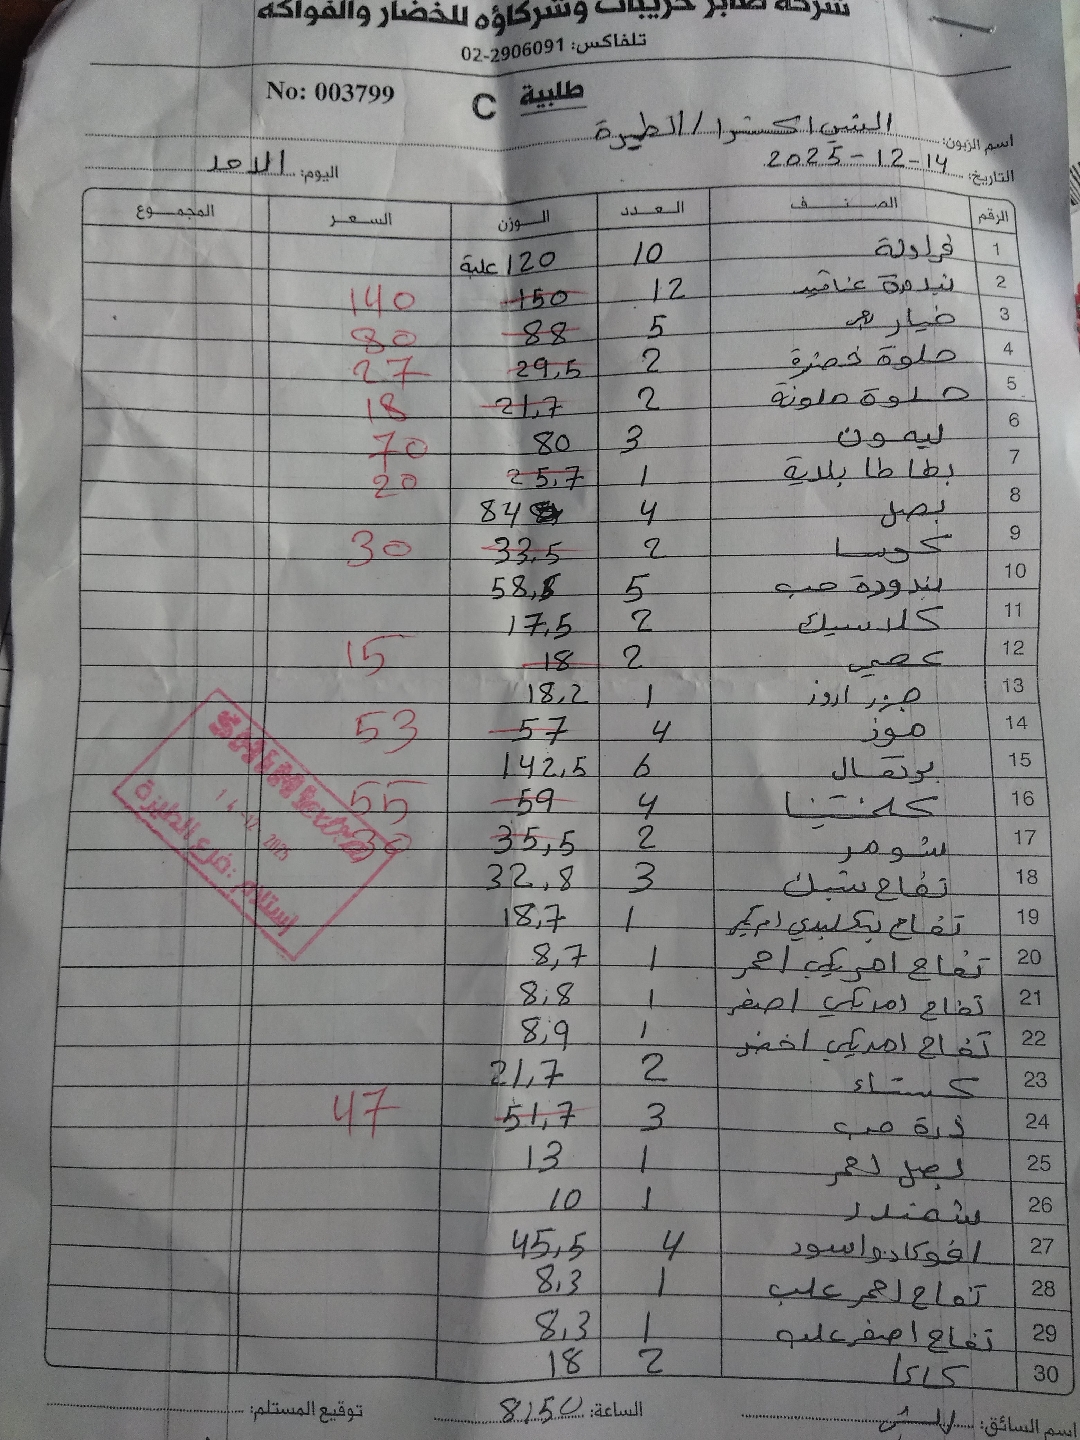 شركة صابر حريبات وشركاؤه للخضار والفواكه
تلفاكس: 02-2906091
No: 003799 C طلبية
اسم الزبون: الشني اكسترا / الطيرة
التاريخ: 14-12-2025 اليوم: الاحد
الرقم الصنف العدد الوزن السعر المجموع
1 فراولة 10 120 علبة
2 بندورة عناقيد 12 150 140
3 خيار 5 88 80
4 حلوة خضرة 2 29,5 27
5 حلوة ملونة 2 21,7 18
6 ليمون 3 80 70
7 بطاطا بلدية 1 25,7 20
8 بصل 4 84
9 كوسا 2 33,5 30
10 بندورة حب 5 58,5
11 كلاسيك 2 17,5
12 عجمي 2 18 15
13 جزر اروز 1 18,2
14 موز 4 57 53
15 برتقال 6 142,5
16 كلمنتينا 4 59 55
17 شومر 2 35,5 30
18 تفاح ستيك 3 32,8
19 تفاح 1 18,7
20 تفاح امريكي احمر 1 8,7
21 تفاح امريكي اصفر 1 8,8
22 تفاح امريكي اخضر 1 8,9
23 كستناء 2 21,7
24 ذرة حب 3 51,7 47
25 بصل احمر 1 13
26 شمندر 1 10
27 افوكادو اسود 4 45,5
28 تفاح احمر علب 1 8,3
29 تفاح اصفر علب 1 8,3
30 كاكا 2 18
SHINI EXTRA
14-12 2025
إستلام: فرع الطيرة
اسم السائق: الساعة: 8:50 توقيع المستلم: